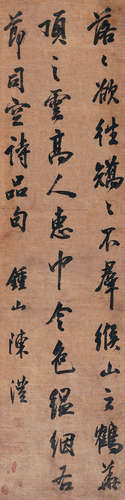 落〻欲往矯〻不羣緱山之鶴華
頂之雲高人惠中令色縕絪右
節司空詩品句 鍾山陳澧